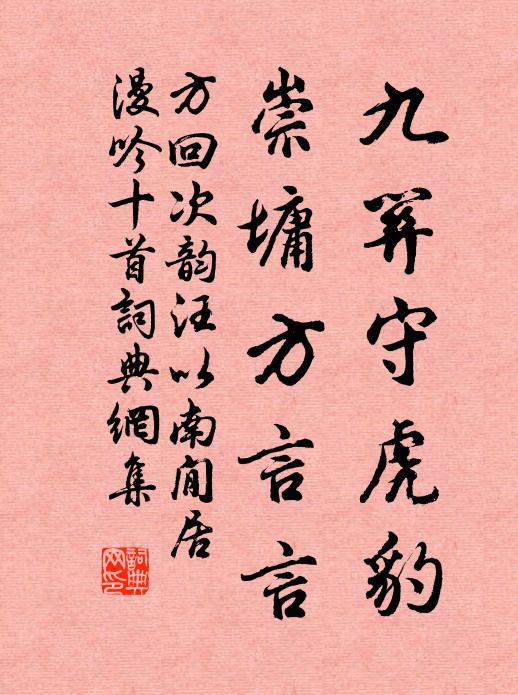 九關守虎豹
崇墉方言言
方回次韵汪以南閒居
漫吟十首詞典網集
詞典網印